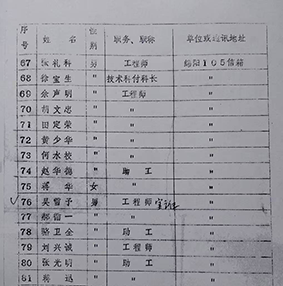 序号 姓名 性别 职务、职称 单位或通讯地址
67 张礼科 男 工程师 绵阳105信箱
68 徐宝生 〃 技术科付科长 〃
69 余声明 〃 工程师 〃
70 胡文忠 〃 〃 〃
71 田定荣 〃 〃 〃
72 黄少华 〃 〃 〃
73 何水校 〃 〃 〃
74 赵华德 〃 助工 〃
75 蒋华 女 〃 〃
√76 吴雪子 男 工程师 〃
77 郝信一 〃 〃 〃
78 骆卫全 〃 助工 〃
79 刘兴诚 〃 工程师 〃
80 张光明 〃 助工 〃
81 蒋迅 〃 〃 〃